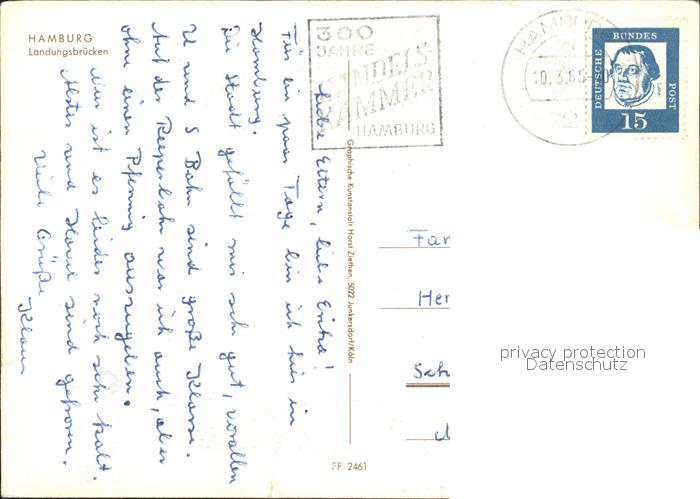 HAMBURG
Landungsbrücken
300
JAHRE
HANDELS
KAMMER
HAMBURG
HAMBURG
10.3.65
2
DEUTSCHE BUNDES POST
Luther
15
Liebe Eltern, liebe Erika!
Für ein paar Tage bin ich hier in
Hamburg.
Die Stadt gefällt mir sehr gut, vorallen
U und S Bahn sind große Klasse.
Auf der Reeperbahn war ich auch, aber
ohne einen Pfennig auszugeben.
Nur ist es leider noch sehr kalt.
Alster und Hafen sind gefroren.
Viele Grüße
Klaus
Graphische Kunstanstalt Horst Ziethen, 5022 Junkersdorf/Köln
Fam
Her
FF 2461
privacy protection
Datenschutz